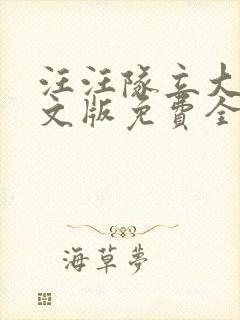 汪汪隊立大
文版免費全
海草夢